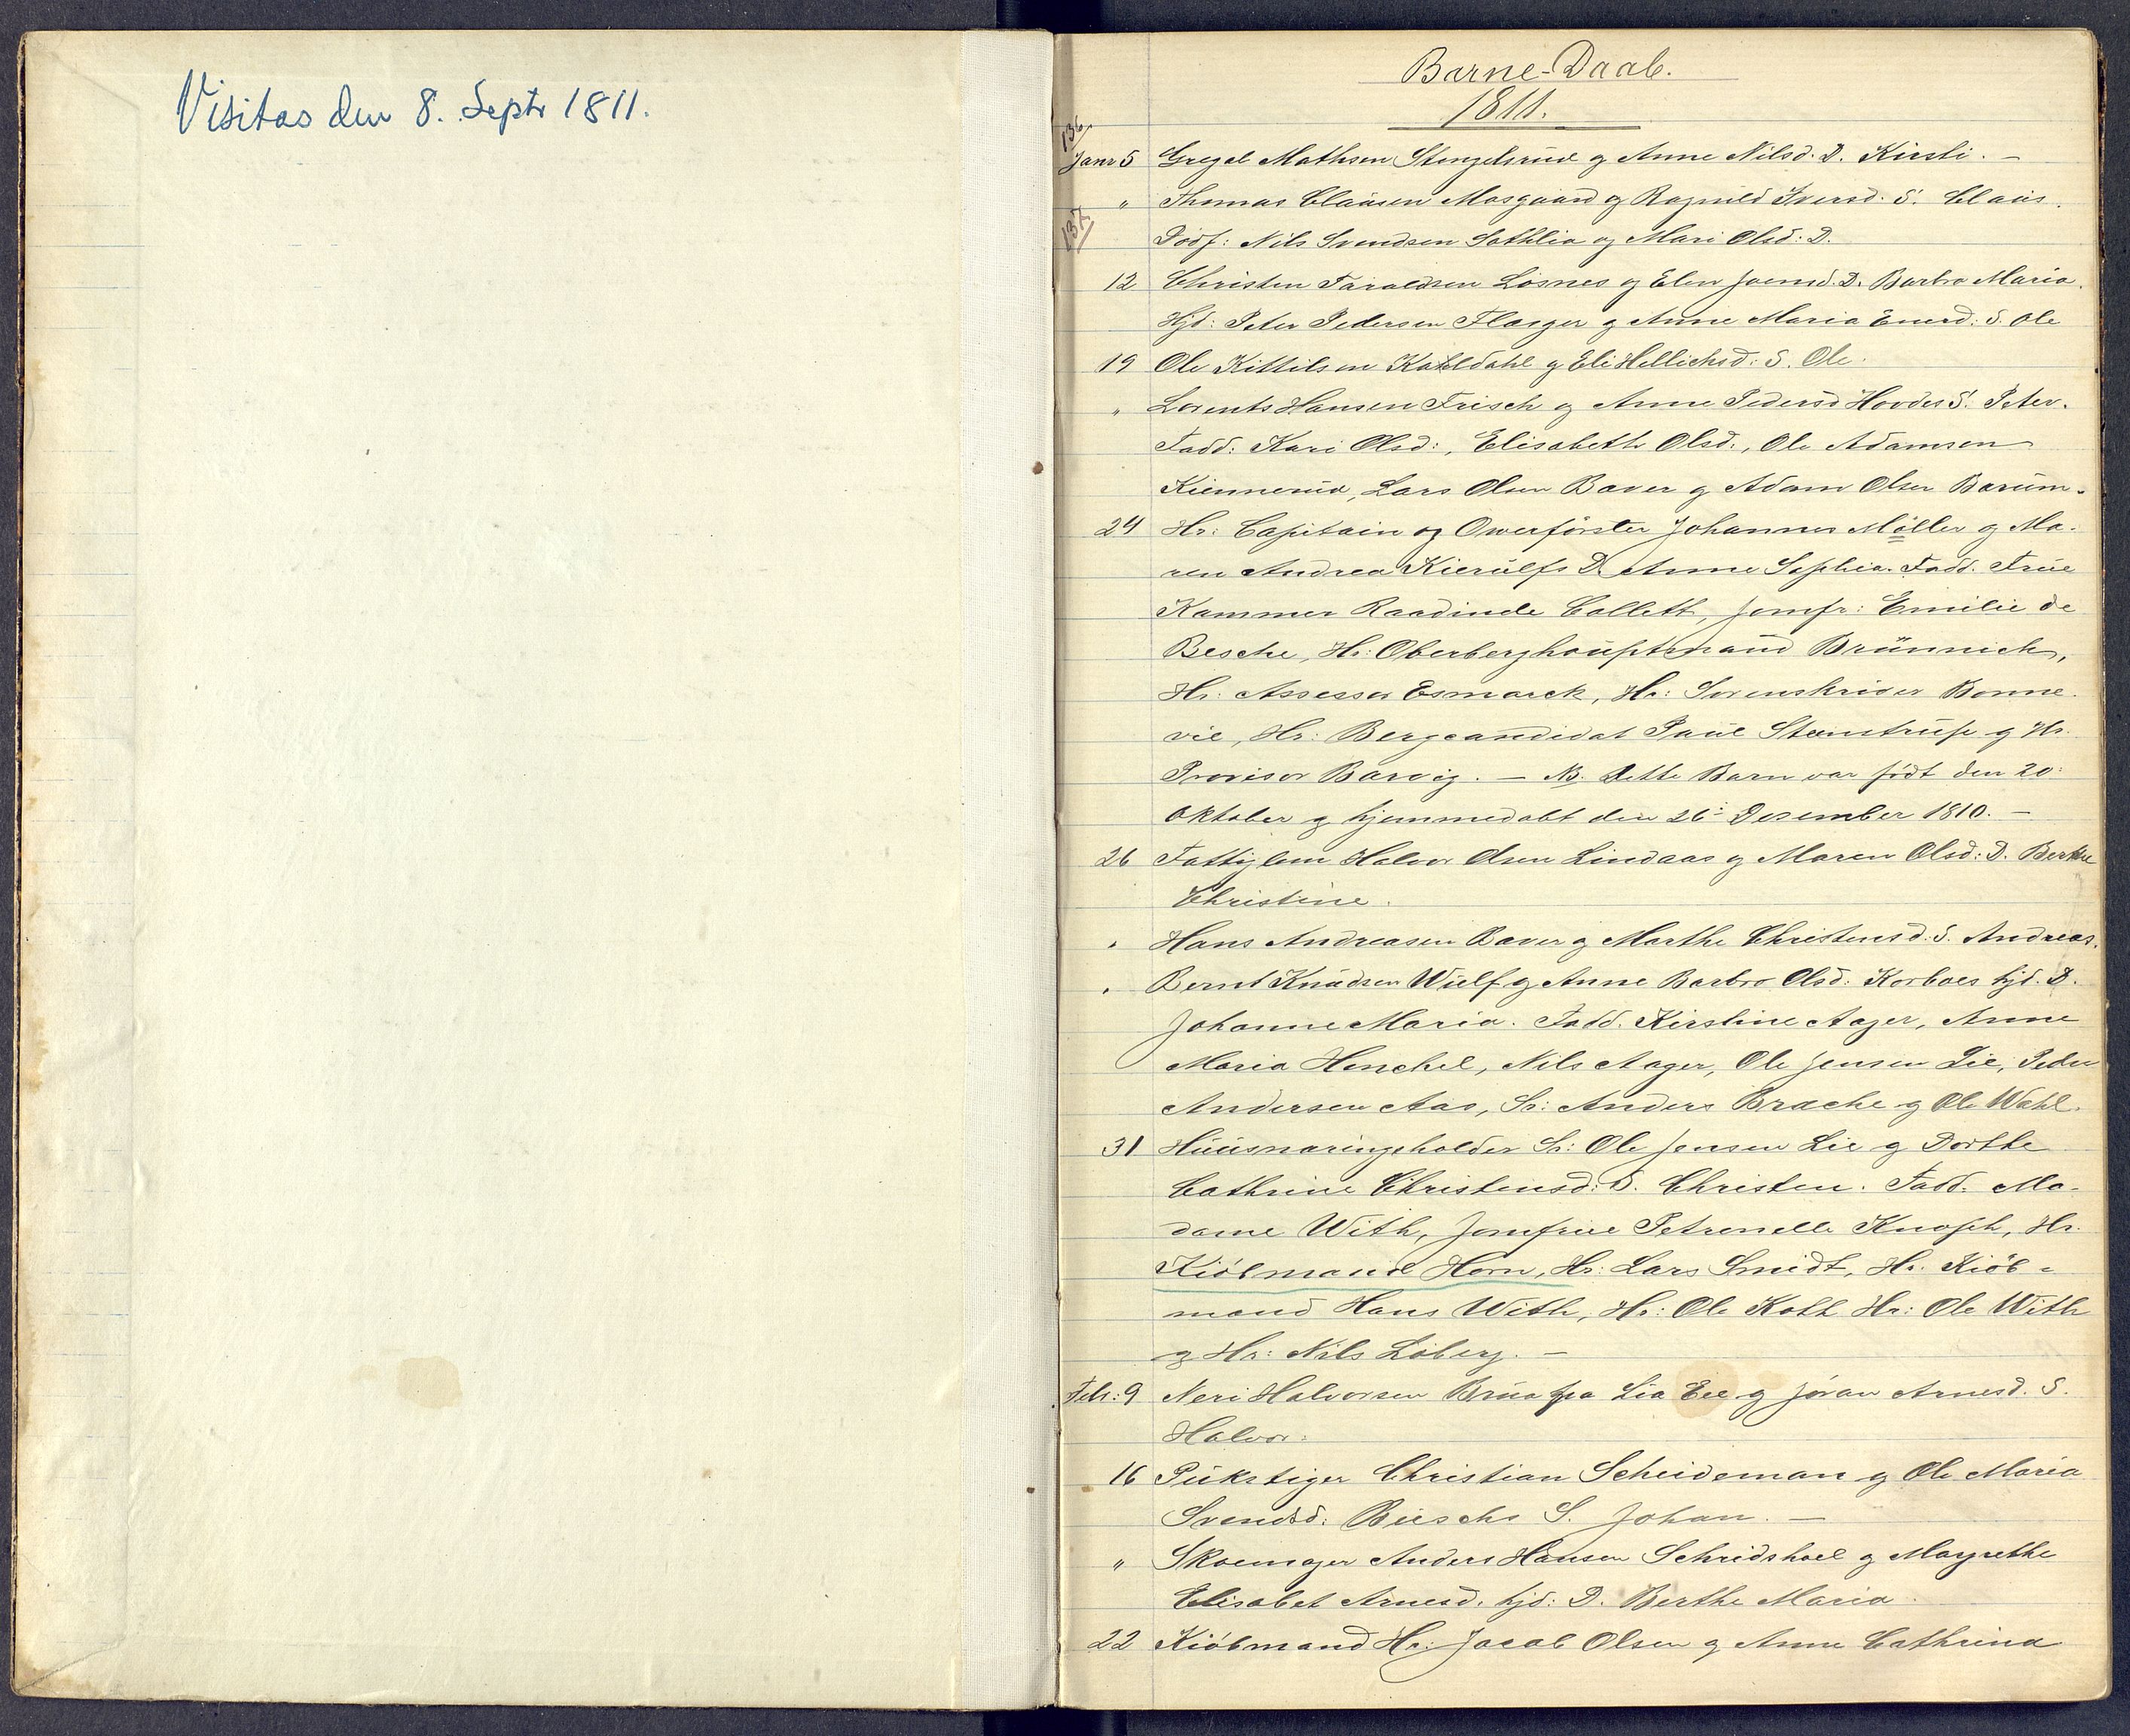 Visitas den 8. Septr 1811.
Barne-Daab.
1811.
136
Janr 5 Gregel Mathsen Stengelsrud og Anne Nilsd. D. Kirsti. —
" Thomas Claüsen Mosgaard og Ragnild Iversd. S. Claüs.
137
Dödf: Nils Svendsen Sathlia og Mari Olsd: D.
12 Christen Taraldsen Losnes og Elen Joensd. D. Barbro Maria.
Hjd: Peter Pedersen Flæger og Anne Maria Enersd: S. Ole
19 Ole Kittilsen Kahldahl og Eli Hellichsd: S. Ole.
" Lorents Hansen Frisch og Anne Pedersd Hovdes S. Peter.
Fadd: Kari Olsd:, Elisabeth Olsd:, Ole Adamsen
Kiennerud, Lars Olsen Baver og Adam Olsen Barüm.
24 Hr: Capitain og Owerförster Johannes Möller og Ma-
ren Andrea Kierülfs D. Anne Sophia. Fadd. Früe
Kammer Raadinde Collett, Jomfr: Emilie de
Besche, Hr: Oberberghoüptmand Brünnich,
Hr. Assessor Esmarck, Hr: Sorenskriver Bonne-
vie, Hr: Bergcandidat Paül Steenstrüp og Hr.
Provisor Barvig. — NB. Dette Barn var födt den 20:
Oktober og hjemmedöbt den 26: Desember 1810. —
26 Fattiglem Halvor Olsen Lindaas og Maren Olsd: D. Berthe
Christine.
" Hans Andreasen Baver og Marthe Christensd: S. Andreas.
" Bernt Knüdsen Wülf og Anne Barbro Olsd: Korboes hjd. D.
Johanne Maria. Fadd. Kirstine Aager, Anne
Maria Henchel, Nils Aager, Ole Jensen Lie, Peder
Andersen Aas, Sr: Anders Brache og Ole Wahl.
31 Hüüsnæringsholder Sr: Ole Jensen Lie og Dorthe
Cathrine Christensd: S. Christen. Fadd. Ma-
dame With, Jomfrue Petronelle Knoph, Hr.
Kiöbmand Horn, Hr: Lars Smidt, Hr. Kiöb-
mand Hans With, Hr: Ole Kohl Hr: Ole With
og Hr: Nils Löberg. —
Febr: 9 Neri Halvorsen Brüa fra Lia Eie og Jöran Arnesd. S.
Halvor.
16 Pükstiger Christian Scheideman og Ole Maria
Svendsd: Büschs S. Johan. —
" Skoemager Anders Hansen Schridshoel og Margrethe
Elisabet Arnesd. hjd: D. Berthe Maria.
22 Kiöbmand Hr: Jacob Olsen og Anne Cathrina